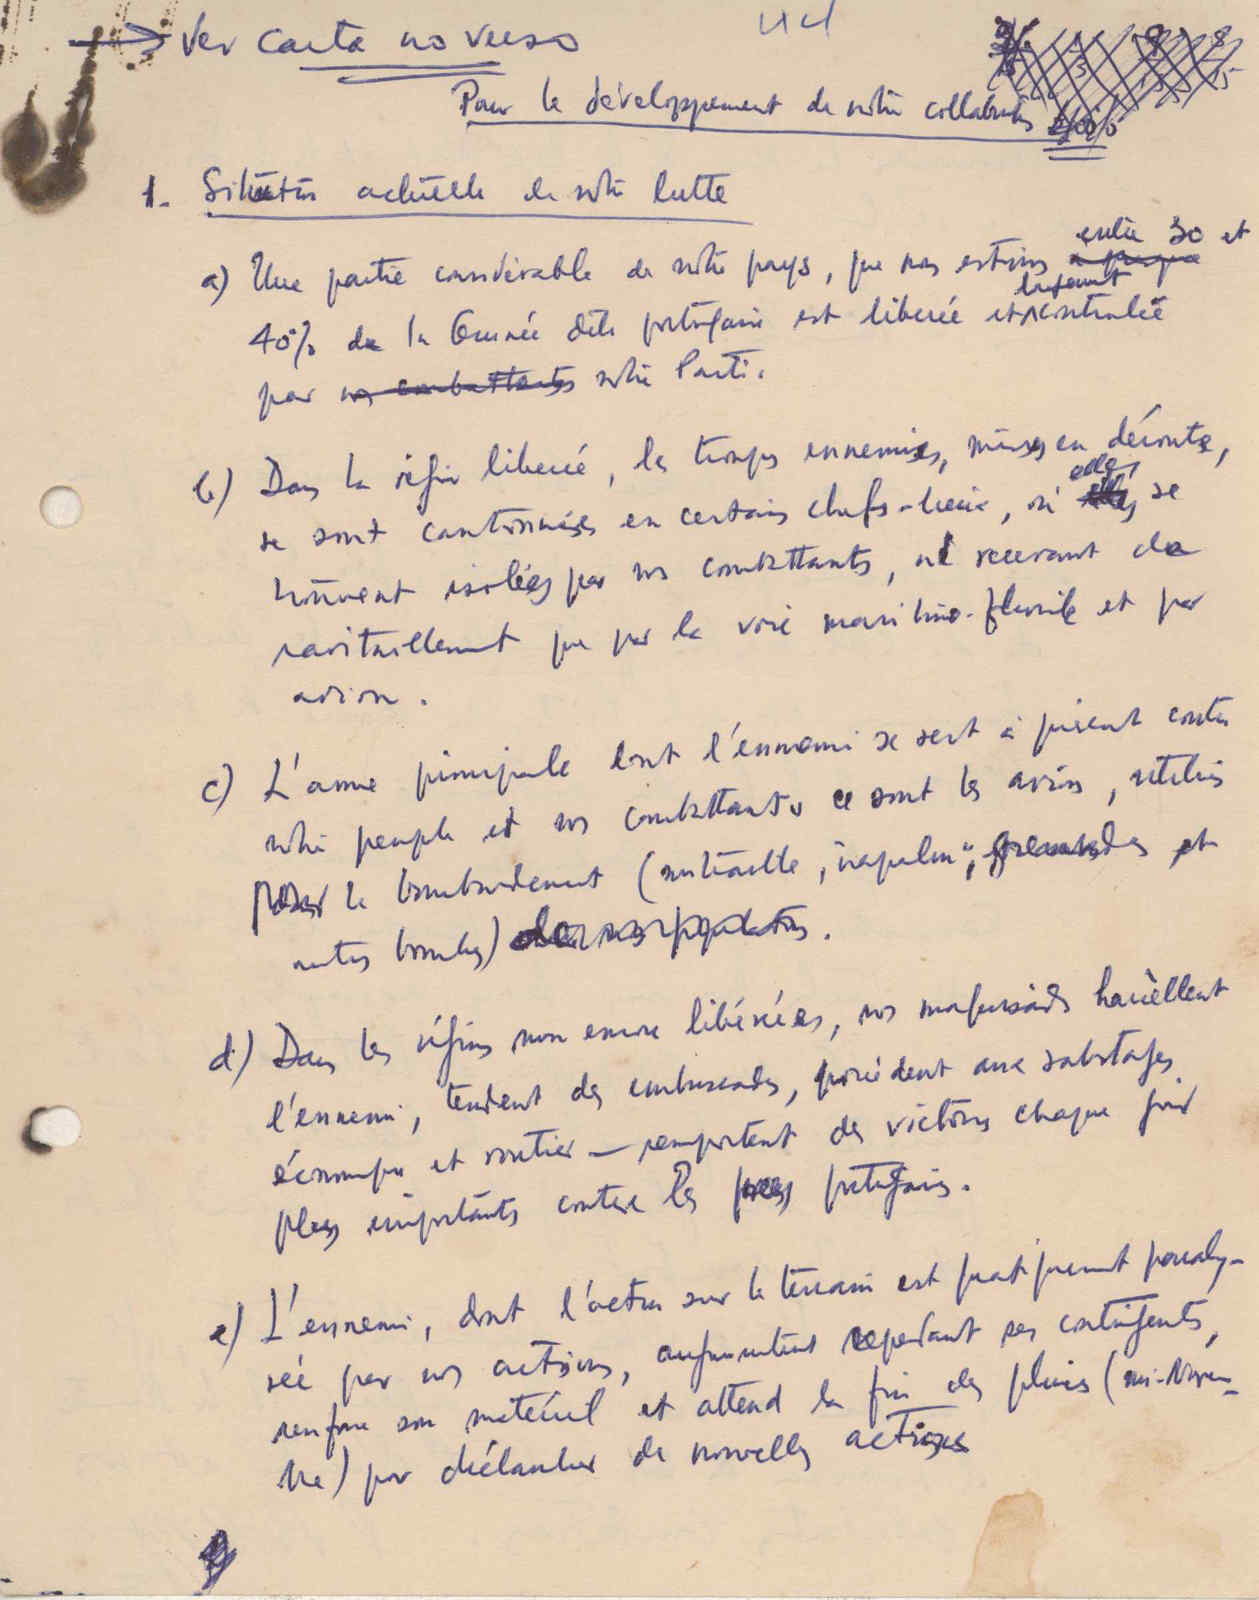 Ver carta no verso
Pour le développement de notre collaboration
1. Situation actuelle de notre lutte
a) Une partie considérable de notre pays, que nous estimons entre 30 et
40% de la Guinée dite portugaise est libérée et contrôlée
par nos combattants notre Parti.
b) Dans la région libérée, les troupes ennemies, mises en déroute,
se sont cantonnées en certains chefs-lieux, où elles se
trouvent isolées par nos combattants, ne recevant de
ravitaillement que par la voie maritime-fluviale et par
avion.
c) L'arme principale dont l'ennemi se sert à présent contre
notre peuple et nos combattants ce sont les avions, utilisés
pour le bombardement (mitraille, "napalm", grenades et
autres bombes) de nos populations.
d) Dans les régions non encore libérées, nos maquisards harcèllent
l'ennemi, tendent des embuscades, procèdent aux sabotages
économique et routier — remportent des victoires chaque jour
plus importants contre les portugais.
e) L'ennemi, dont l'action sur le terrain est pratiquement paraly-
sée par nos actions, augmentent cependant ses contingents,
renforce son matériel et attend la fin des pluies (mi-Novem-
bre) pour déclancher de nouvelles actions